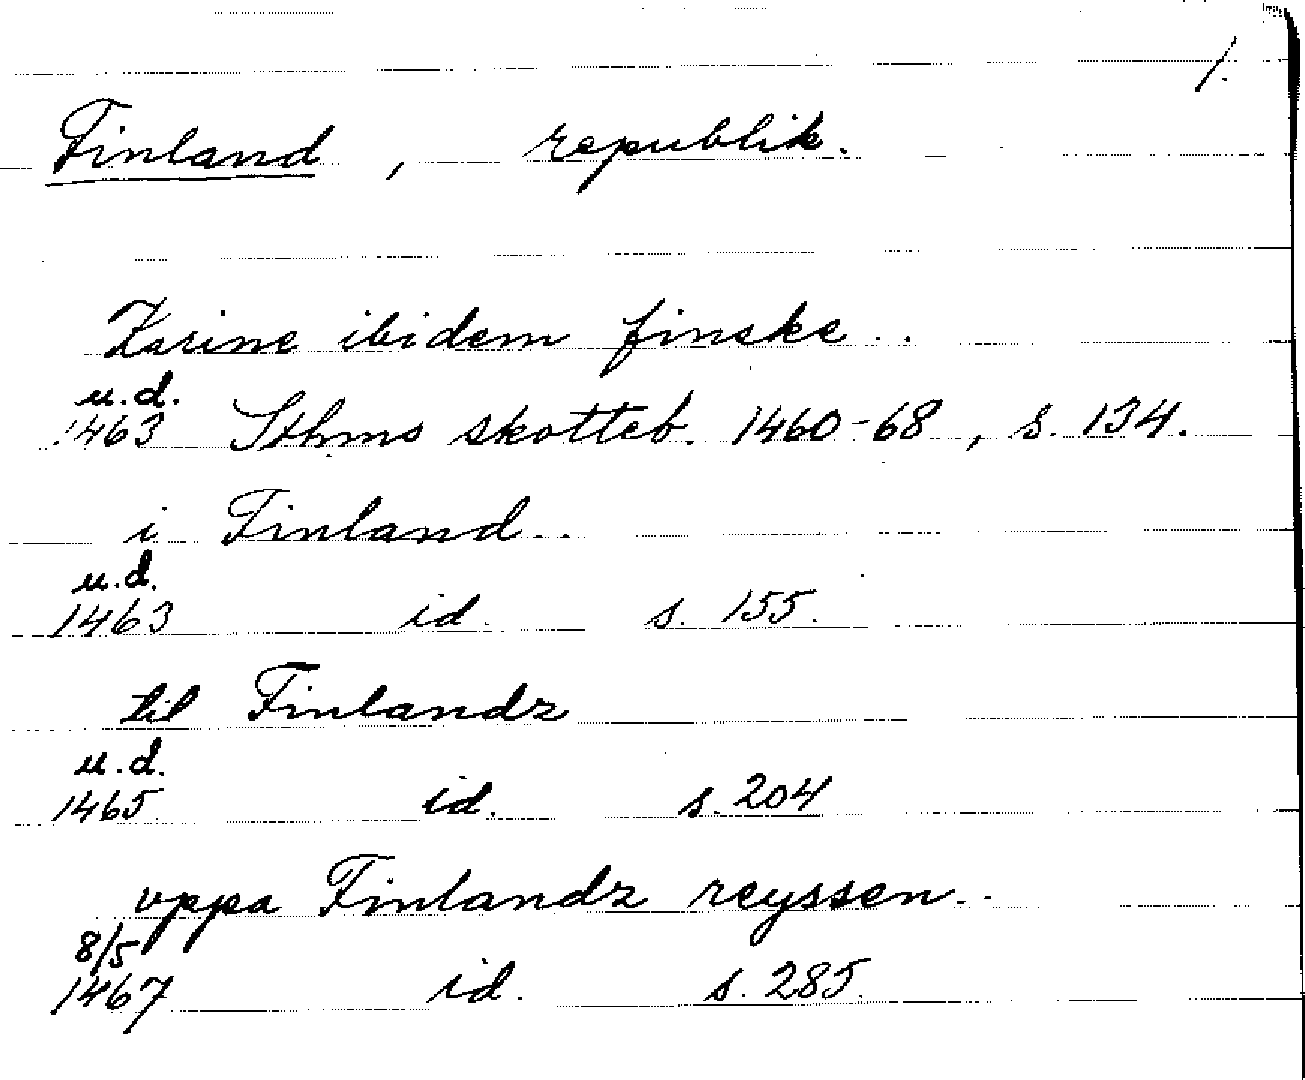 1.
Finland, republik.
Karine ibidem finske..
u.d.
1463 Sthms skotteb. 1460-68, s. 134.
i Finland..
u.d.
1463 id. s. 155.
til Finlandz
u.d.
1465 id. s. 204
vppa Finlandz reyssen..
8/5
1467 id. s. 285.